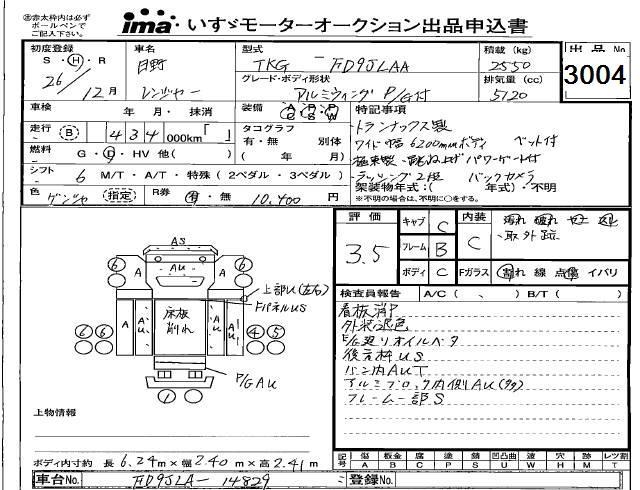 ㊟赤太枠内は必ず
ボールペンで
ご記入下さい。
ima いすゞモーターオークション出品申込書
出品 No
3004
初度登録
S ・ H ・ R
26 / 12 月
車名
日野
レンジャー
型式
TKG - FD9JLAA
グレード・ボディ形状
アルミウィング P/G付
積載 (kg)
2550
排気量 (cc)
5120
車検 年 月・ 抹消
装備 A P P C S W
特記事項
走行 B 434 000km「 」
タコグラフ
有・無 別体
( 年 月)
燃料 G・D・HV 他( )
シフト 6 M/T・A/T・特殊 (2ペダル・3ペダル)
色 ゲンジャ 指定
R券 有・無 10,400 円
トランテックス製
ワイド幅 6200mmボディ ベット付
極東製 跳ね上げ パワーゲート付
ラッシング2段 バックカメラ
架装物年式:( 年式)・不明
※不明の場合は、不明に○をする。
評価
3.5
キャブ C
フレーム B
ボディ C
内装
C
汚れ 破れ
・取外跡
Fガラス 割れ 線 点傷 イバリ
検査員報告 A/C ( 、 ) B/T ( )
看板消甲
外装退色
E/G廻りオイルベタ
後右枠US
バン内AUT
アルミブロック内側AU(多々)
フレーム一部S
AS
AU
6 6
A A
上部U(左右)
FパネルUS
A AU 床板削れ AU A
6 6 4 5
P/G AU
1
上物情報
ボディ内寸約 長 6.24 m × 幅 2.40 m × 高 2.41 m
記号 傷 板金 腐 塗 錆 凹凸曲 波 穴 跡 レツ割
A B C P S U W H M T
車台No. FD9JLA-14829
登録No.